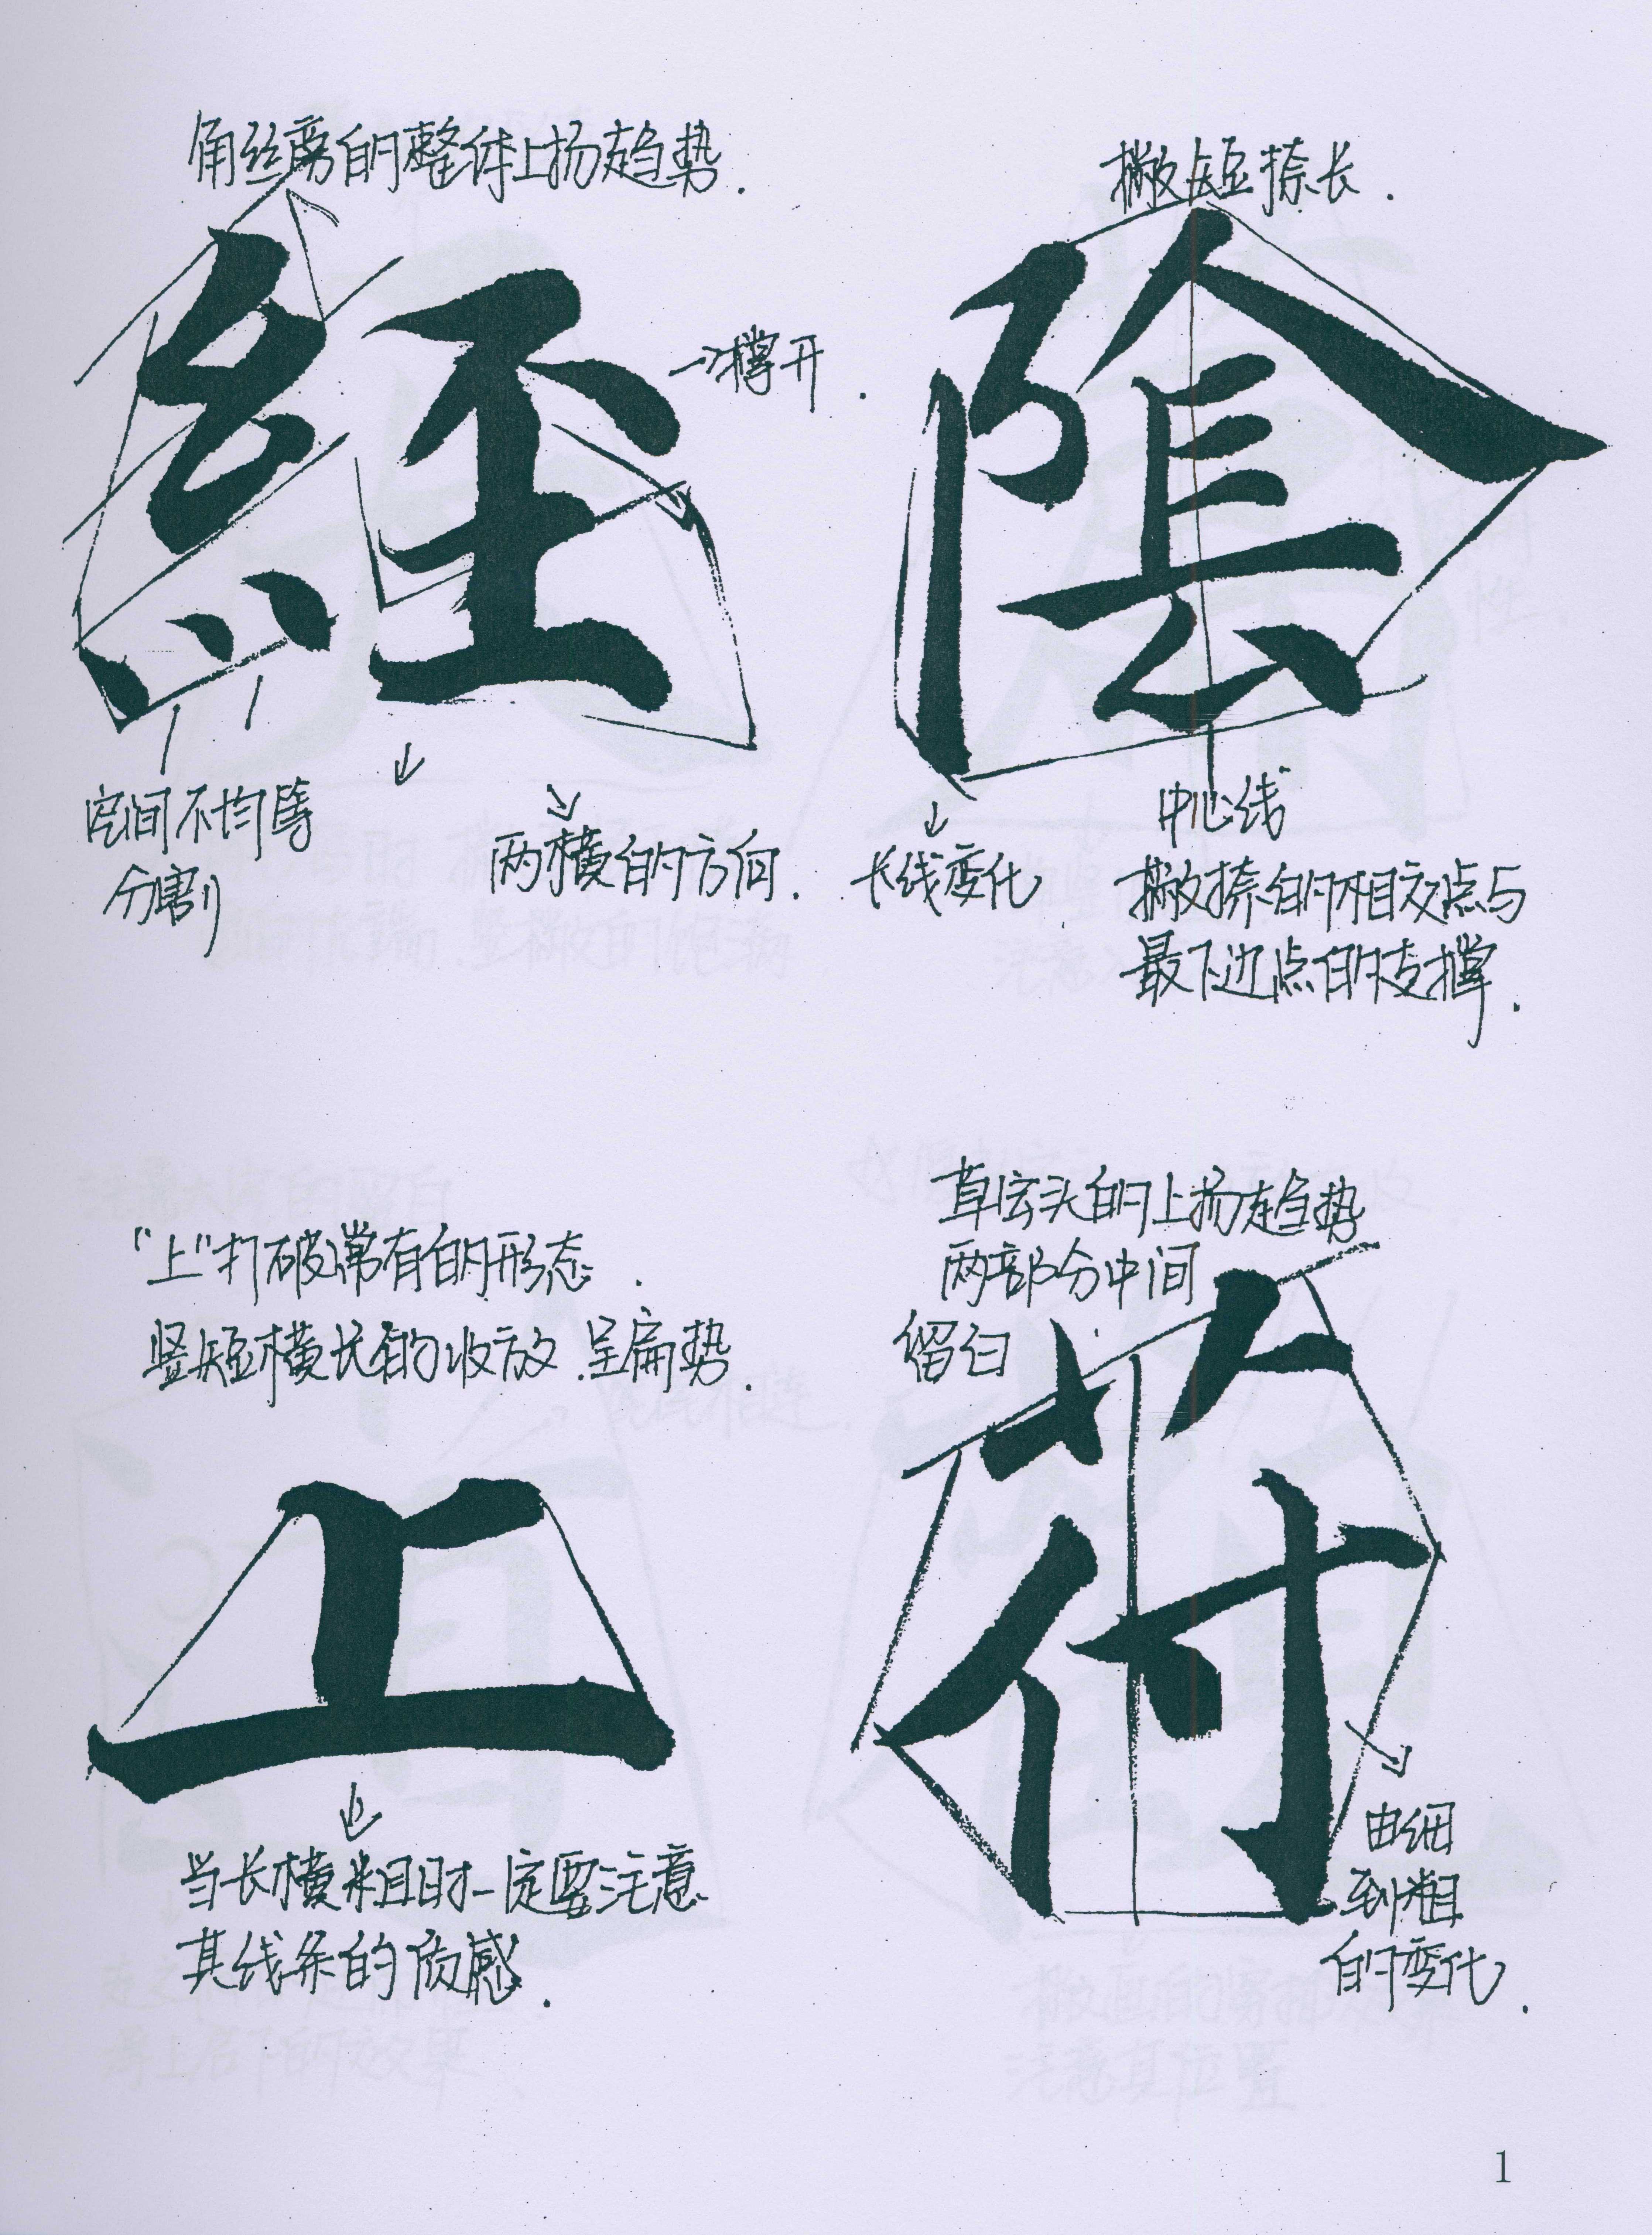 角丝旁的整体上扬趋势.
經
→撑开.
空间不均等
分割
两横的方向.
撇短捺长.
陰
长线变化
中心线
撇捺的相交点与
最下边点的支撑.
"上"打破常有的形态.
竖短横长的收放.呈扁势.
上
当长横粗时一定要注意
其线条的质感.
草字头的上扬趋势
两部分中间
留白
苻
由细
到粗
的变化.
1